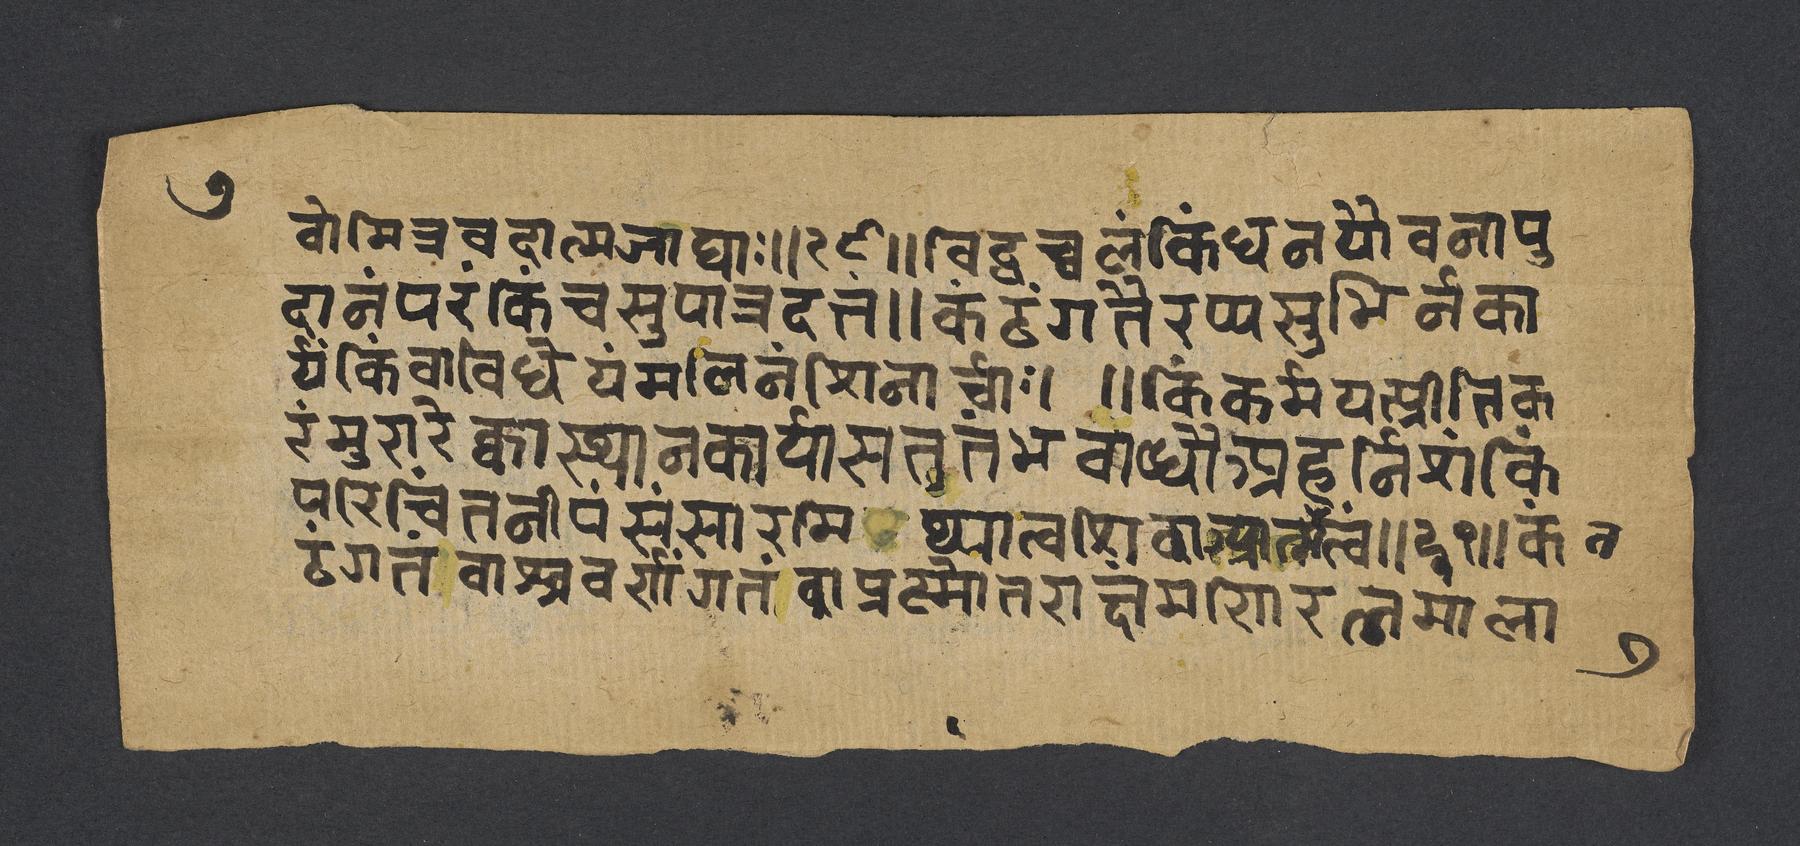 ७
वो मित्रवदात्मजाद्याः॥२९॥विद्वच्चलं किंधनयौवनापु
दानं परं किं च सुपात्रदत्तं॥कंठं गतैरप्यसुभिर्नका
र्यं किं वा विधेयं मलिनं शिनार्चाः।॥किं कर्म यत्प्रीतिक
रं मुरारे क्वास्थानकार्यासततं भवाब्धौऽप्रहर्निशं किं
परिचिंतनीपं संसारमिथ्यात्वशिवात्मतत्त्वं॥३१॥कं त
ठं गतं वा श्रवर्णांगतं वा प्रश्नोतराख्यं मणिरत्नमाला
७